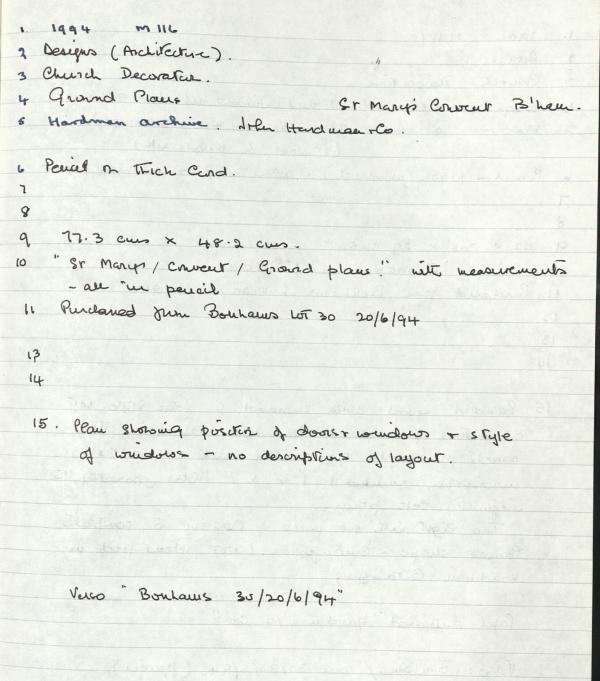 1. 1994 M116
2 Designs (Architecture).
3 Church Decoration.
4 Ground Plans St Mary's Convent B'ham.
5 Hardman archive. John Hardman & Co.
6 Pencil on Thick Card.
7
8
9 77.3 cms × 48.2 cms.
10 "St Marys / Convent / Ground plans." with measurements
- all in pencil
11 Purchased from Bonhams LOT 30 20/6/94
13
14
15. Plan showing position of doors & windows & style
of windows - no descriptions of layout.
Verso "Bonhams 30/20/6/94"